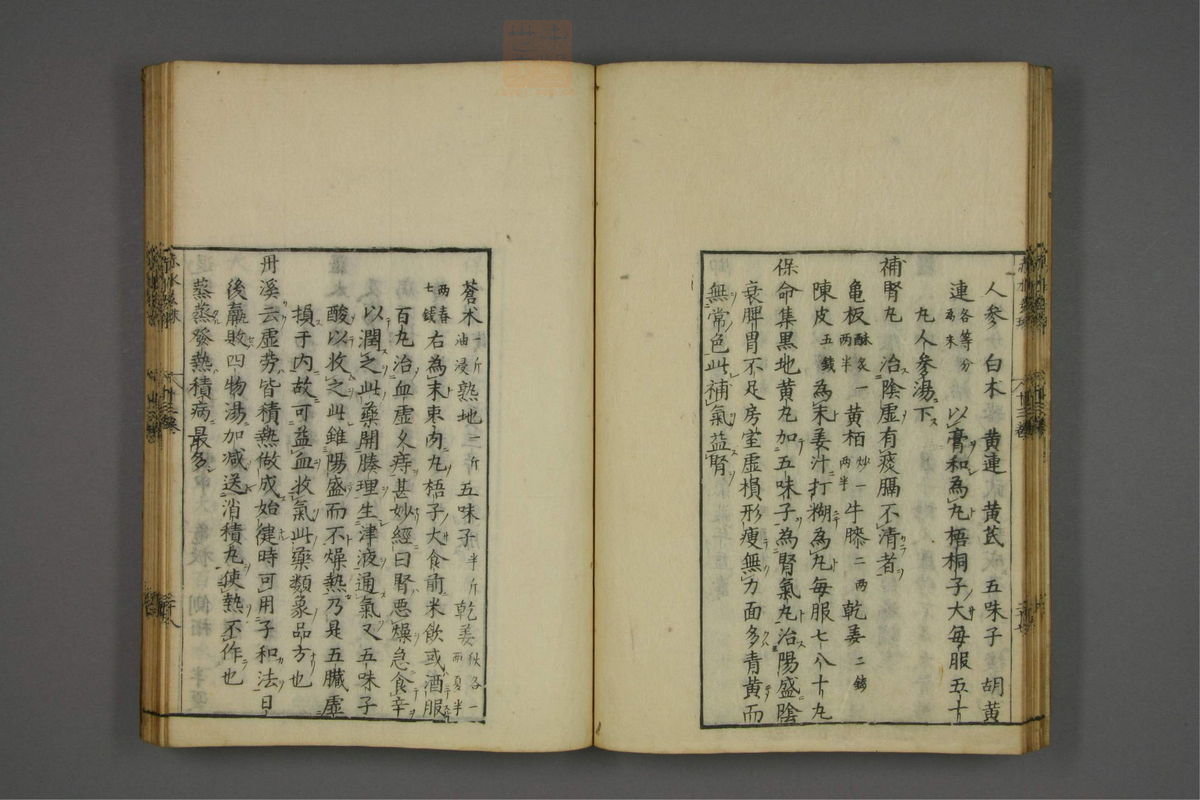 人參 白术 黄連 黄芪 五味子 胡黄
連各等分為末 以膏和為丸梧桐子大每服五十
丸人參湯下
補腎丸 治陰虛有痰膈不清者
龟板酥炙一两半 黄栢炒一两半 牛膝二两 乾姜二錢
陳皮五錢 為末姜汁打糊為丸每服七八十丸
保命集黒地黄丸加五味子為腎氣丸治陽盛陰
衰脾胃不足房室虛損形瘦無力面多青黄而
無常色此補氣益腎
蒼术一斤油浸 熟地一斤 五味子半斤 乾姜秋冬一两夏半
两春七錢 右為末枣肉丸梧子大食前米飲或酒服
百丸治血虛久痔甚妙經曰腎悪燥急食辛
以潤之此藥開腠理生津液通氣又五味子
酸以收之此雖陽盛而不燥熱乃是五臟虛
損于内故可益血收氣此藥類象品方也
丹溪云虛劳皆積熱做成始健時可用子和法日
後羸敗四物湯加减送消積丸使熱不作也
蒸蒸發熱積病最多